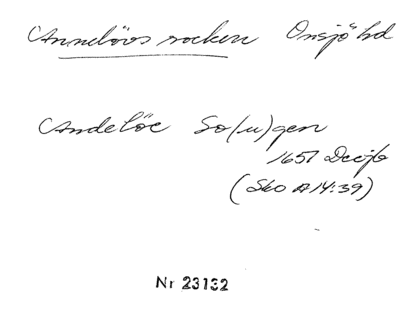 Annelövs socken Onsjö hd
Andelöc So(u)gen
1651 Decjb
(Sko A 14:39)
Nr 23132